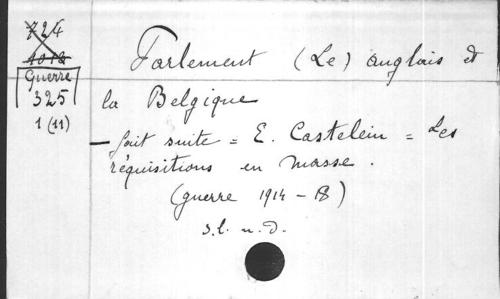 724
1012
Guerre
325
1 (11)
Parlement (Le) anglais et
la Belgique
— fait suite = E. Castelein = Les
réquisitions en masse.
(guerre 1914-18)
s.l. n.d.